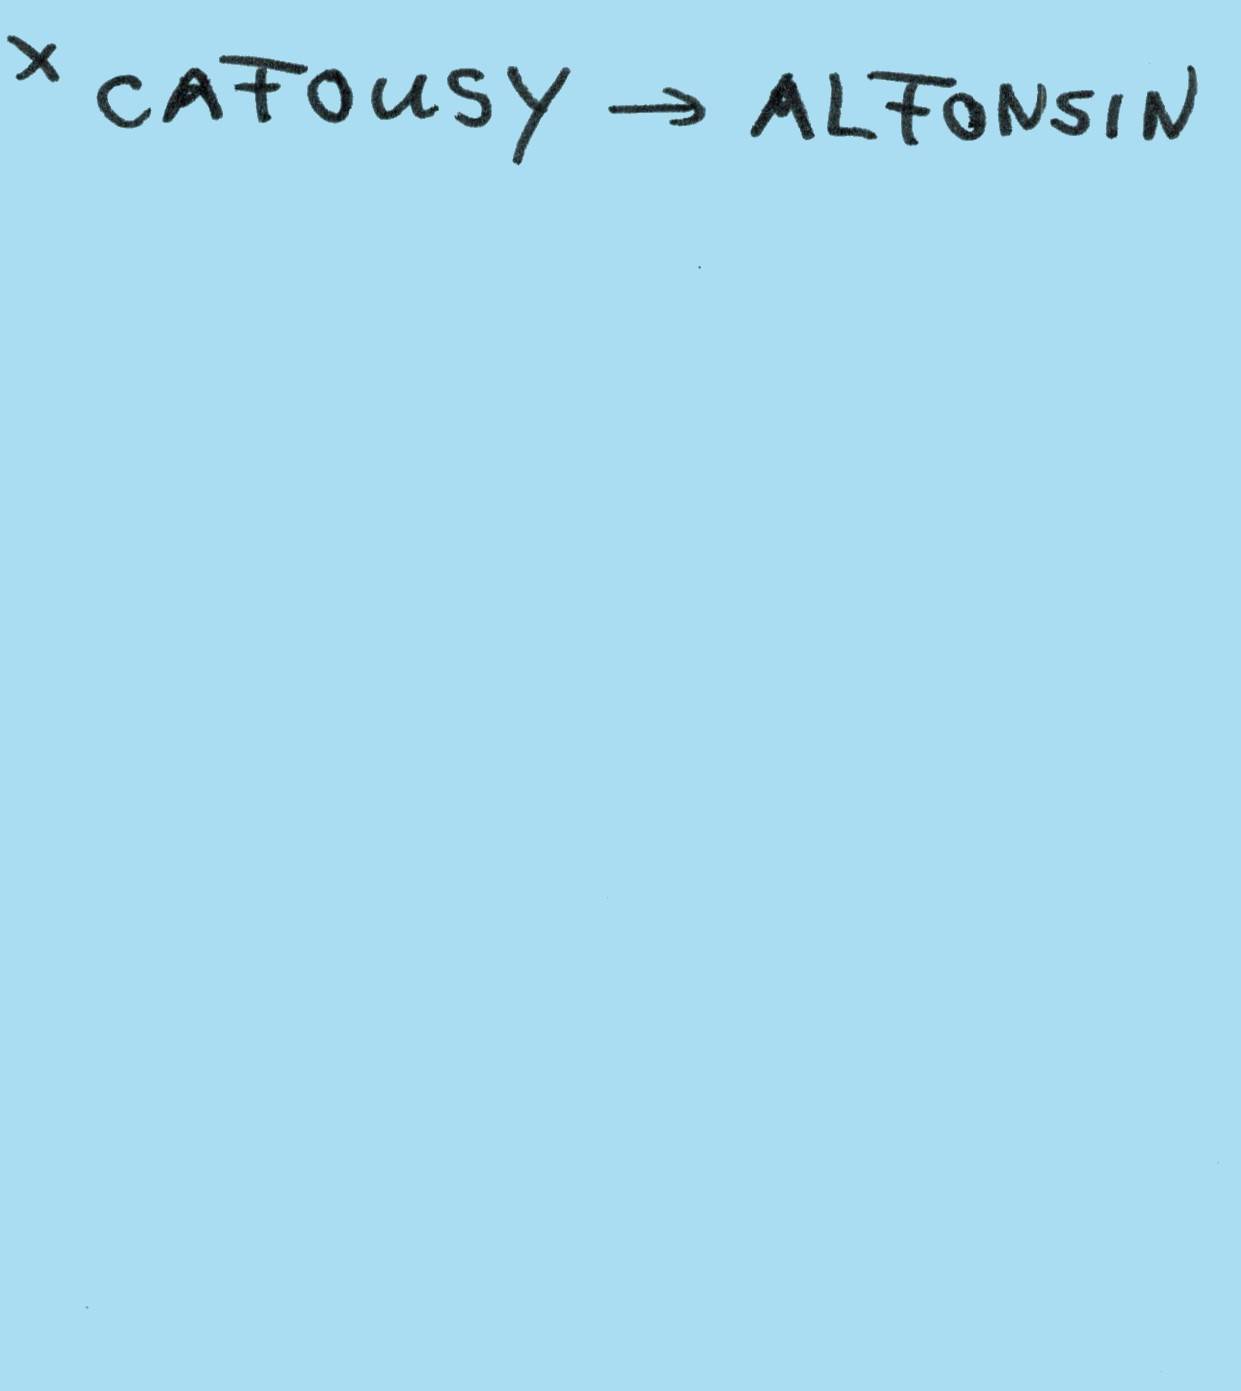 x CAFOUSY → ALFONSIN